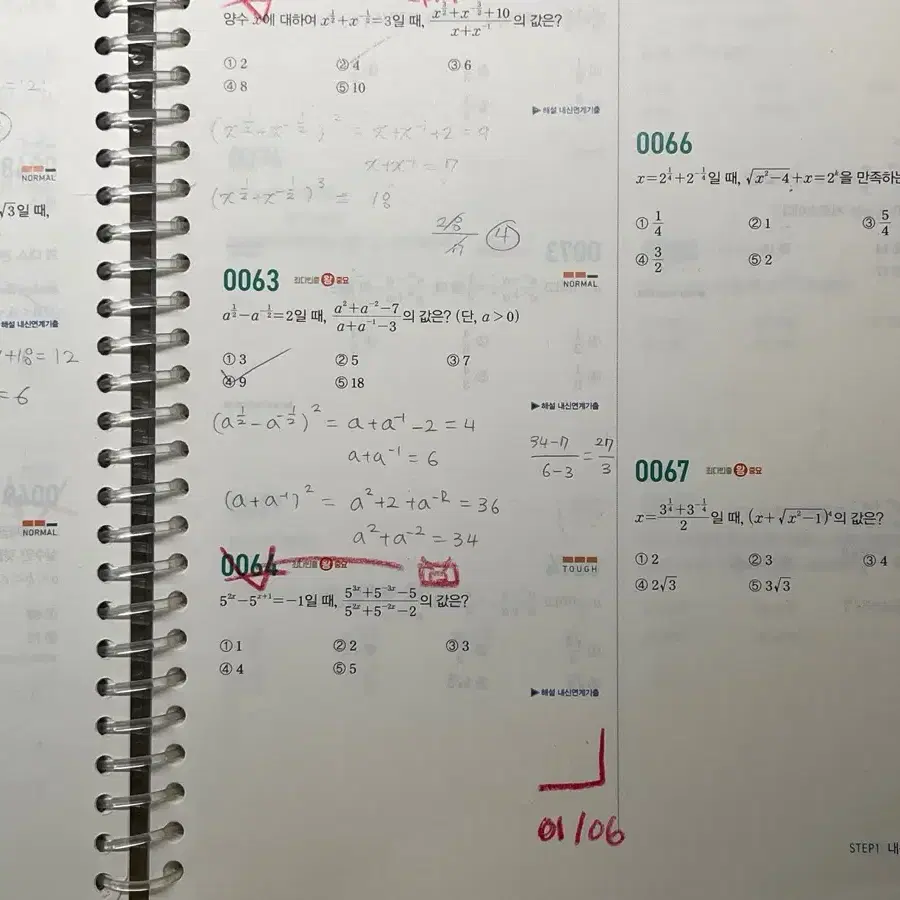 = '2'.
NORMAL
√3일 때,
해설 내신연계기출
+18 = 12
= 6
NORMAL
양수 x에 대하여 x^{1/2}+x^{-1/2}=3일 때, (x^{3/2}+x^{-3/2}+10)/(x+x^{-1})의 값은?
① 2 ② 4 ③ 6
④ 8 ⑤ 10
▶ 해설 내신연계기출
(x^{1/2}+x^{-1/2})^2 = x+x^{-1}+2 = 9
x+x^{-1} = 7
(x^{1/2}+x^{-1/2})^3 = 18
28/7 ④
0063 최다빈출 왕 중요
NORMAL
a^{1/2}-a^{-1/2}=2일 때, (a^2+a^{-2}-7)/(a+a^{-1}-3)의 값은? (단, a>0)
① 3 ② 5 ③ 7
④ 9 ⑤ 18
▶ 해설 내신연계기출
(a^{1/2}-a^{-1/2})^2 = a+a^{-1}-2 = 4
a+a^{-1} = 6
(34-7)/(6-3) = 27/3
(a+a^{-1})^2 = a^2+2+a^{-2} = 36
a^2+a^{-2} = 34
0064 최다빈출 왕 중요
TOUGH
5^{2x}-5^{x+1}=-1일 때, (5^{3x}+5^{-3x}-5)/(5^{2x}+5^{-2x}-2)의 값은?
① 1 ② 2 ③ 3
④ 4 ⑤ 5
▶ 해설 내신연계기출
01/06
0066
x=2^{1/4}+2^{-1/4}일 때, √(x^2-4)+x=2^k을 만족하는
① 1/4 ② 1 ③ 5/4
④ 3/2 ⑤ 2
0067 최다빈출 왕 중요
x=(3^{1/4}+3^{-1/4})/2일 때, (x+√(x^2-1))^4의 값은?
① 2 ② 3 ③ 4
④ 2√3 ⑤ 3√3
STEP1 내